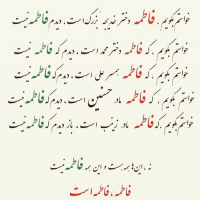 خواستم بگویم، فاطمه دختر خدیجه بزرگ است. دیدم فاطمه نیست
خواستم بگویم، که فاطمه دختر محمد است. دیدم که فاطمه نیست
خواستم بگویم، که فاطمه همسر علی است. دیدم که فاطمه نیست
خواستم بگویم، که فاطمه مادر حسنین است. دیدم که فاطمه نیست
خواستم بگویم، که فاطمه مادر زینب است. باز دیدم که فاطمه نیست
نه، این‌ها همه هست و این همه فاطمه نیست
فاطمه، فاطمه است